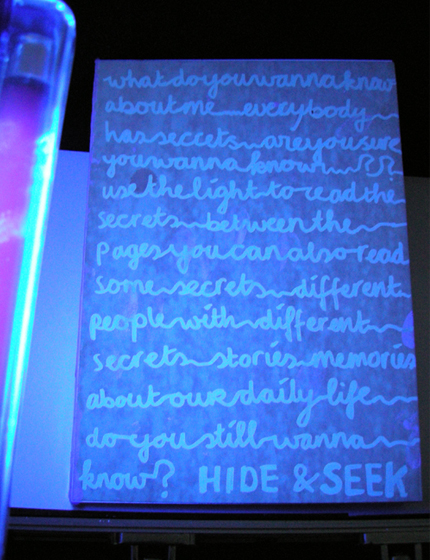 what do you wanna know
about me everybody
has seccets are you sure
you wanna know ??
use the light to read the
secrets between the
pages you can also read
some secrets different
people with different
secrets stories memories
about our daily life
do you still wanna
know? HIDE & SEEK